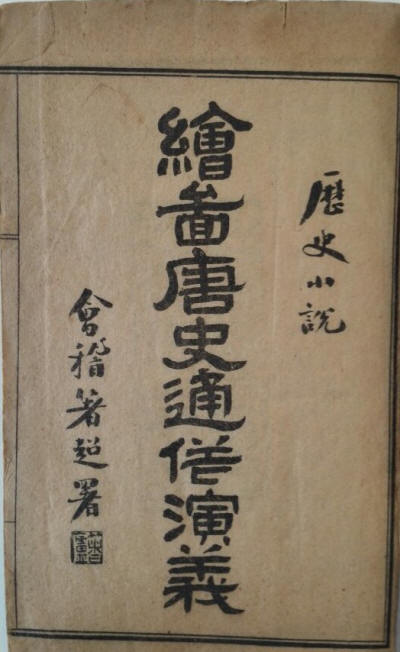 歷史小說
繪啚唐史通俗演義
會稽箸超署